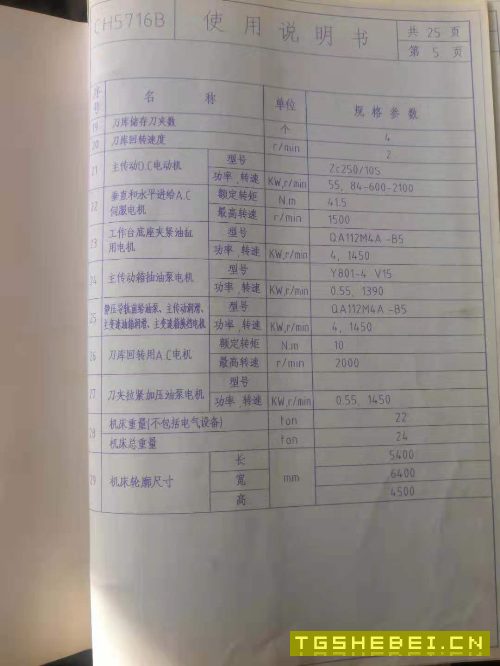 CH5716B 使用说明书 共 25 页
第 5 页
序号 名称 单位 规格参数
19 刀库储存刀夹数 个 4
20 刀库回转速度 r/min 2
21 主传动D.C电动机 型号 Zc250/10S
功率,转速 KW,r/min 55, 84-600-2100
22 垂直和水平进给A.C伺服电机 额定转矩 N.m 41.5
最高转速 r/min 1500
23 工作台底座夹紧油缸用电机 型号 QA112M4A -B5
功率,转速 KW,r/min 4, 1450
24 主传动箱抽油泵电机 型号 Y801-4 V15
功率,转速 KW,r/min 0.55, 1390
25 静压导轨前给油泵、主传动润滑、 型号 QA112M4A -B5
主变速油箱润滑、主变速箱换挡电机 功率,转速 KW,r/min 4, 1450
26 刀库回转用A.C电机 额定转矩 N.m 10
最高转速 r/min 2000
27 刀夹拉紧加压油泵电机 型号
功率,转速 KW,r/min 0.55, 1450
28 机床重量(不包括电气设备) ton 22
机床总重量 ton 24
29 机床轮廓尺寸 长 mm 5400
宽 6400
高 4500
TGSHEBEI.CN